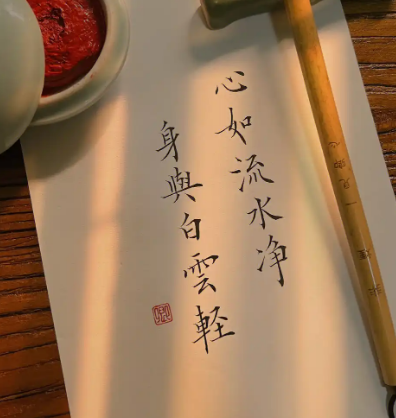 心如流水净
身與白雲軽